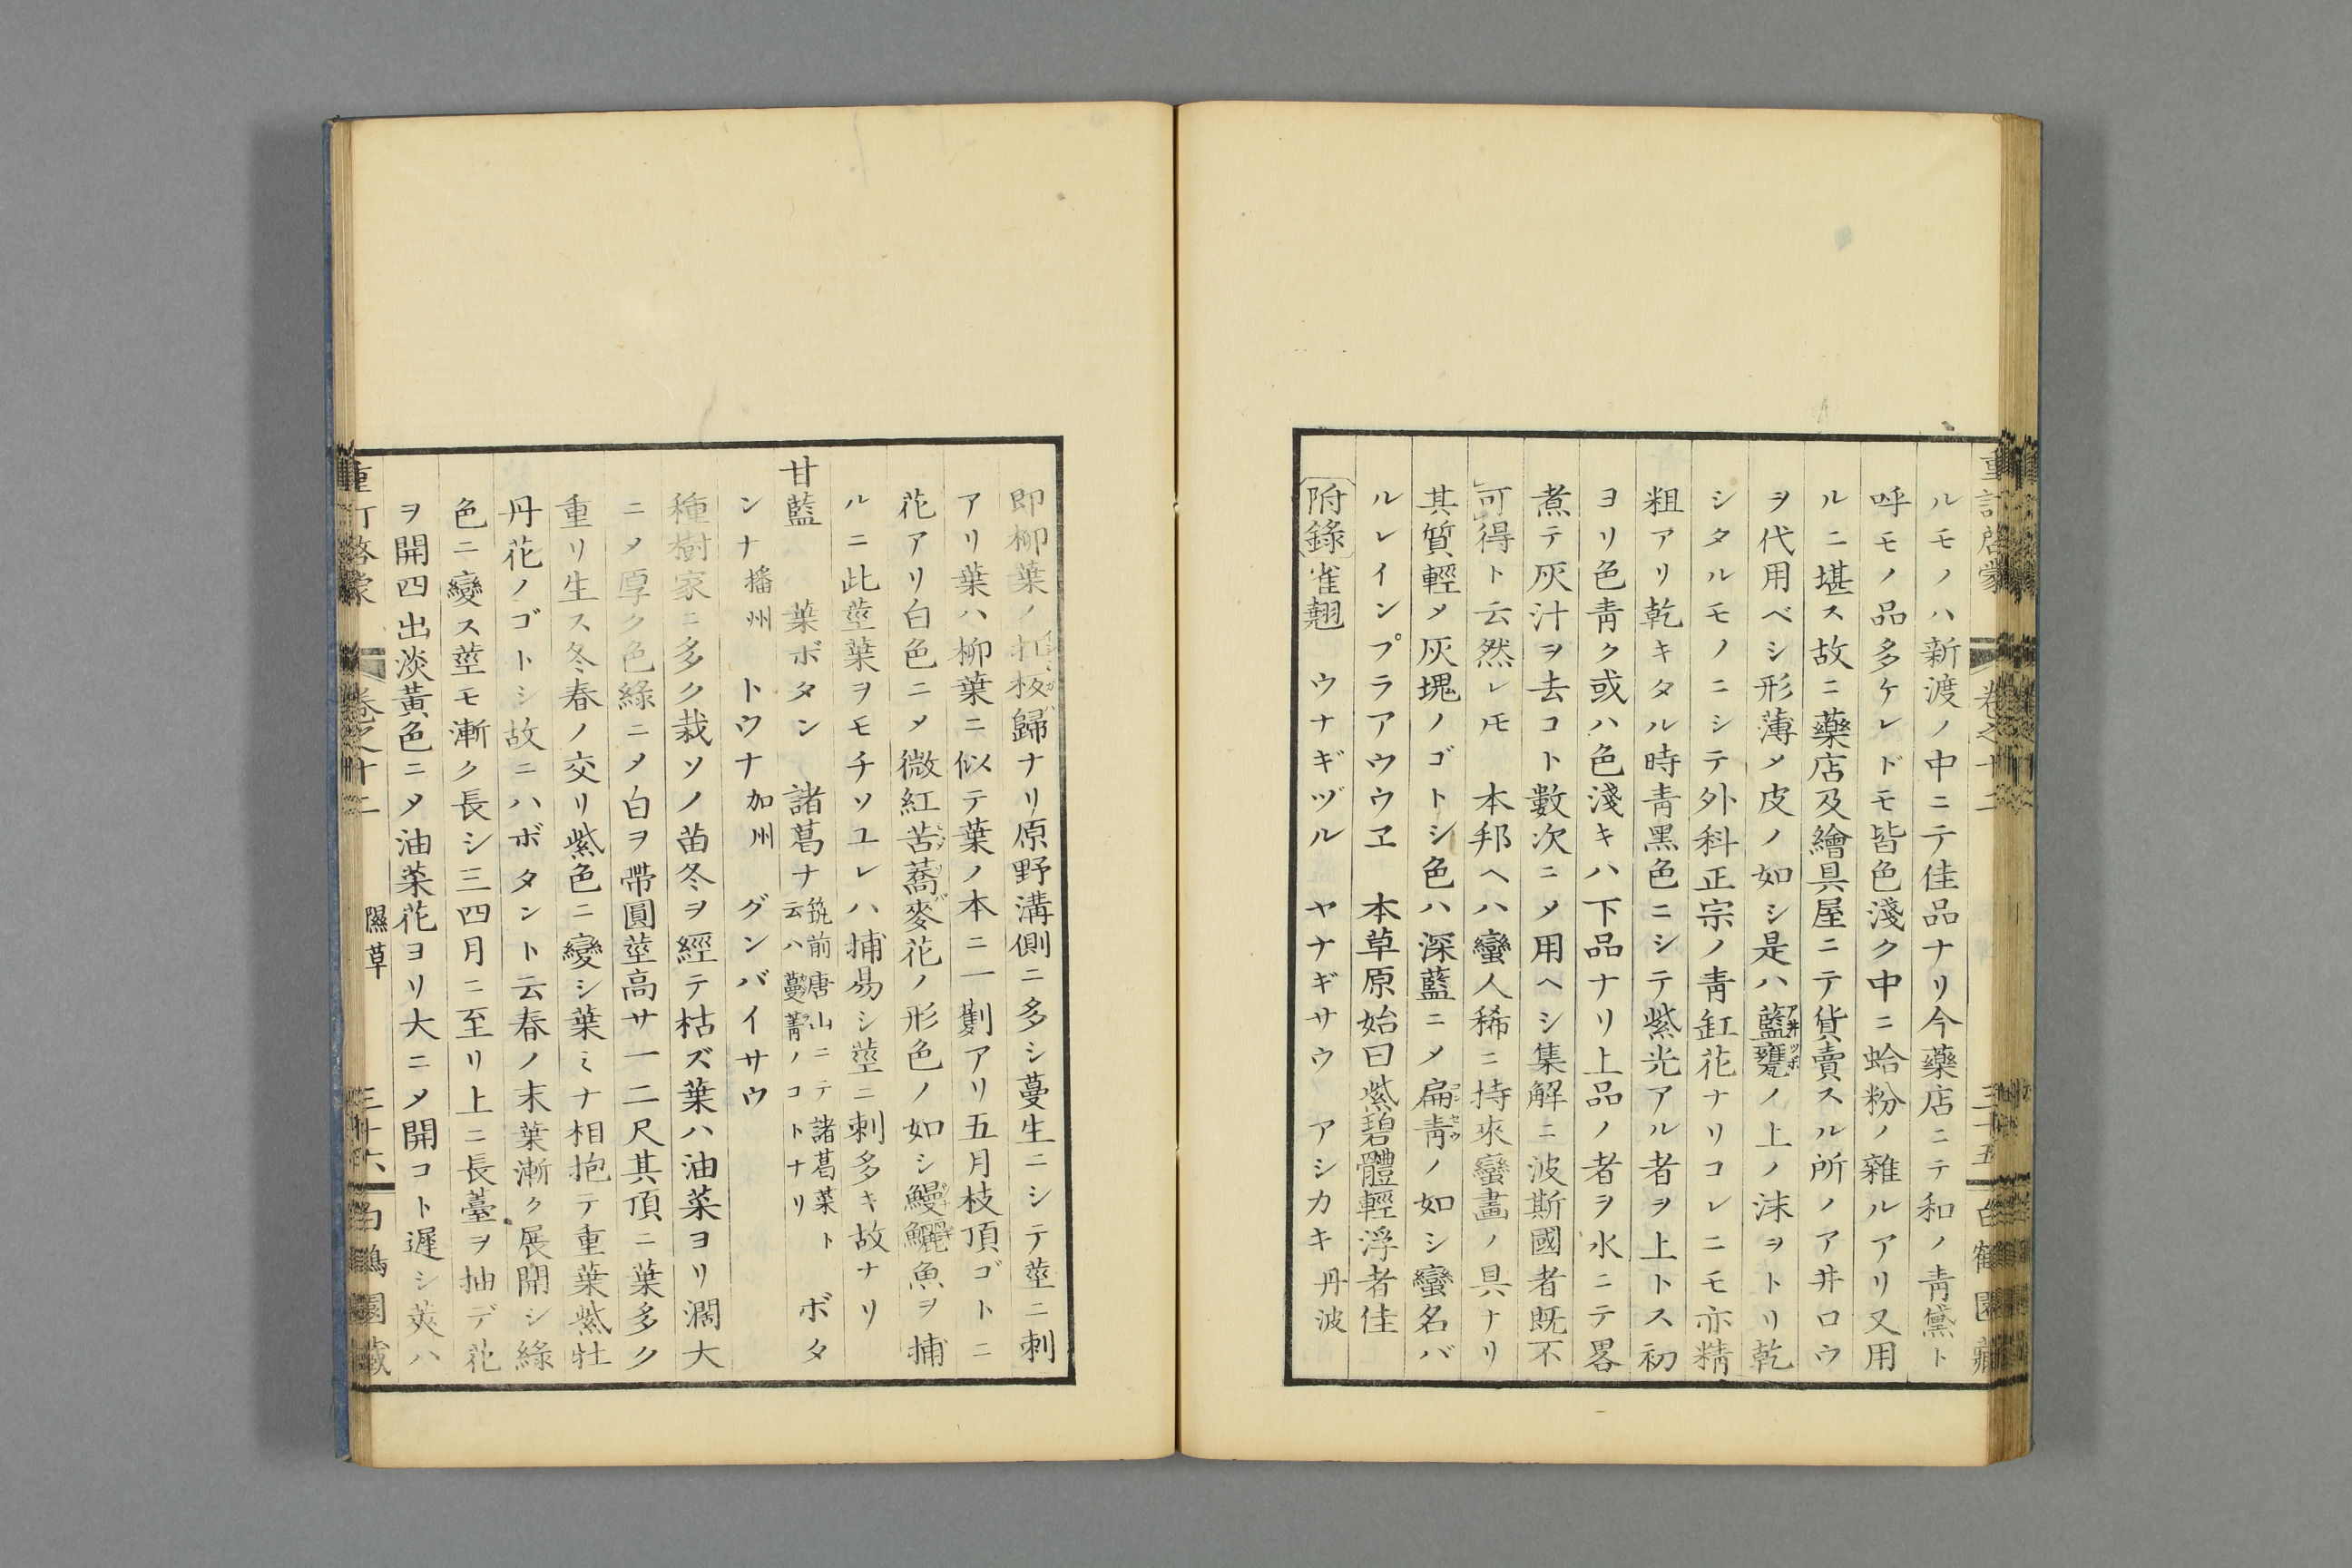 重訂啓蒙 卷之十二 三十五 白鶴園藏
ルモノハ新渡ノ中ニテ佳品ナリ今藥店ニテ和ノ青黛ト
呼モノ品多ケレドモ皆色淺ク中ニ蛤粉ノ雜ルアリ又用
ルニ堪ス故ニ藥店及繪具屋ニテ貨賣スル所ノア井ロウ
ヲ代用ベシ形薄メ皮ノ如シ是ハ藍甕ノ上ノ沫ヲトリ乾
シタルモノニシテ外科正宗ノ青缸花ナリコレニモ亦精
粗アリ乾キタル時青黑色ニシテ紫光アル者ヲ上トス初
ヨリ色青ク或ハ色淺キハ下品ナリ上品ノ者ヲ水ニテ畧
煮テ灰汁ヲ去コト數次ニメ用ヘシ集解ニ波斯國者既不
可得ト云然レ𪜈 本邦ヘハ蠻人稀ニ持來蠻畫ノ具ナリ
其質輕メ灰塊ノゴトシ色ハ深藍ニメ扁青ノ如シ蠻名バ
ルレインプラアウウヱ 本草原始曰紫碧體輕浮者佳
附錄 雀翹 ウナギヅル ヤナギサウ アシカキ 丹波
即柳葉ノ 歸ナリ原野溝側ニ多シ蔓生ニシテ莖ニ刺
アリ葉ハ柳葉ニ似テ葉ノ本ニ一劐アリ五月枝頂ゴトニ
花アリ白色ニメ微紅苦蕎麥花ノ形色ノ如シ鰻鱺魚ヲ捕
ルニ此莖葉ヲモチソユレハ捕易シ莖ニ刺多キ故ナリ
甘藍 葉ボタン 諸葛ナ 筑前唐山ニテ諸葛菜ト云ハ蔓菁ノコトナリ ボタ
ンナ 播州 トウナ 加州 グンバイサウ
種樹家ニ多ク栽ソノ苗冬ヲ經テ枯ズ葉ハ油菜ヨリ濶大
ニメ厚ク色綠ニメ白ヲ帶圓莖高サ一二尺其頂ニ葉多ク
重リ生ス冬春ノ交リ紫色ニ變シ葉ミナ相抱テ重葉紫牡
丹花ノゴトシ故ニハボタント云春ノ末葉漸ク展開シ綠
色ニ變ス莖モ漸ク長シ三四月ニ至リ上ニ長薹ヲ抽デ花
ヲ開四出淡黃色ニメ油菜花ヨリ大ニメ開コト遲シ莢ハ
重訂啓蒙 卷之十二 隰草 三十六 白鶴園藏